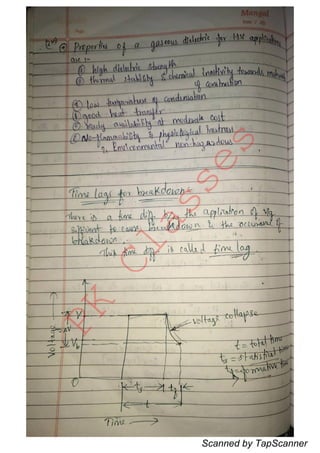 Mangal
Properties of a gaseous dielectric for HV application
are :-
① high dielectric strength
② thermal stability & chemical Inactivity towards
of construction
④ low temperature of condensation
good heat transfer
ready availability at moderate cost
⑥ Non-flammability & physiological inertness
& Environmental non-hazardous
Time lags for breakdown :-
There is a time diff b/w the application of vtg
sufficient to cause breakdown & the occurance of
breakdown.
This time diff is called time lag.
voltage collapse
Voltage →
V
Vb
O
ts
tf
t
t = total time
ts = statistical time
tf = formative time
Time →
RK Classes
Scanned by TapScanner